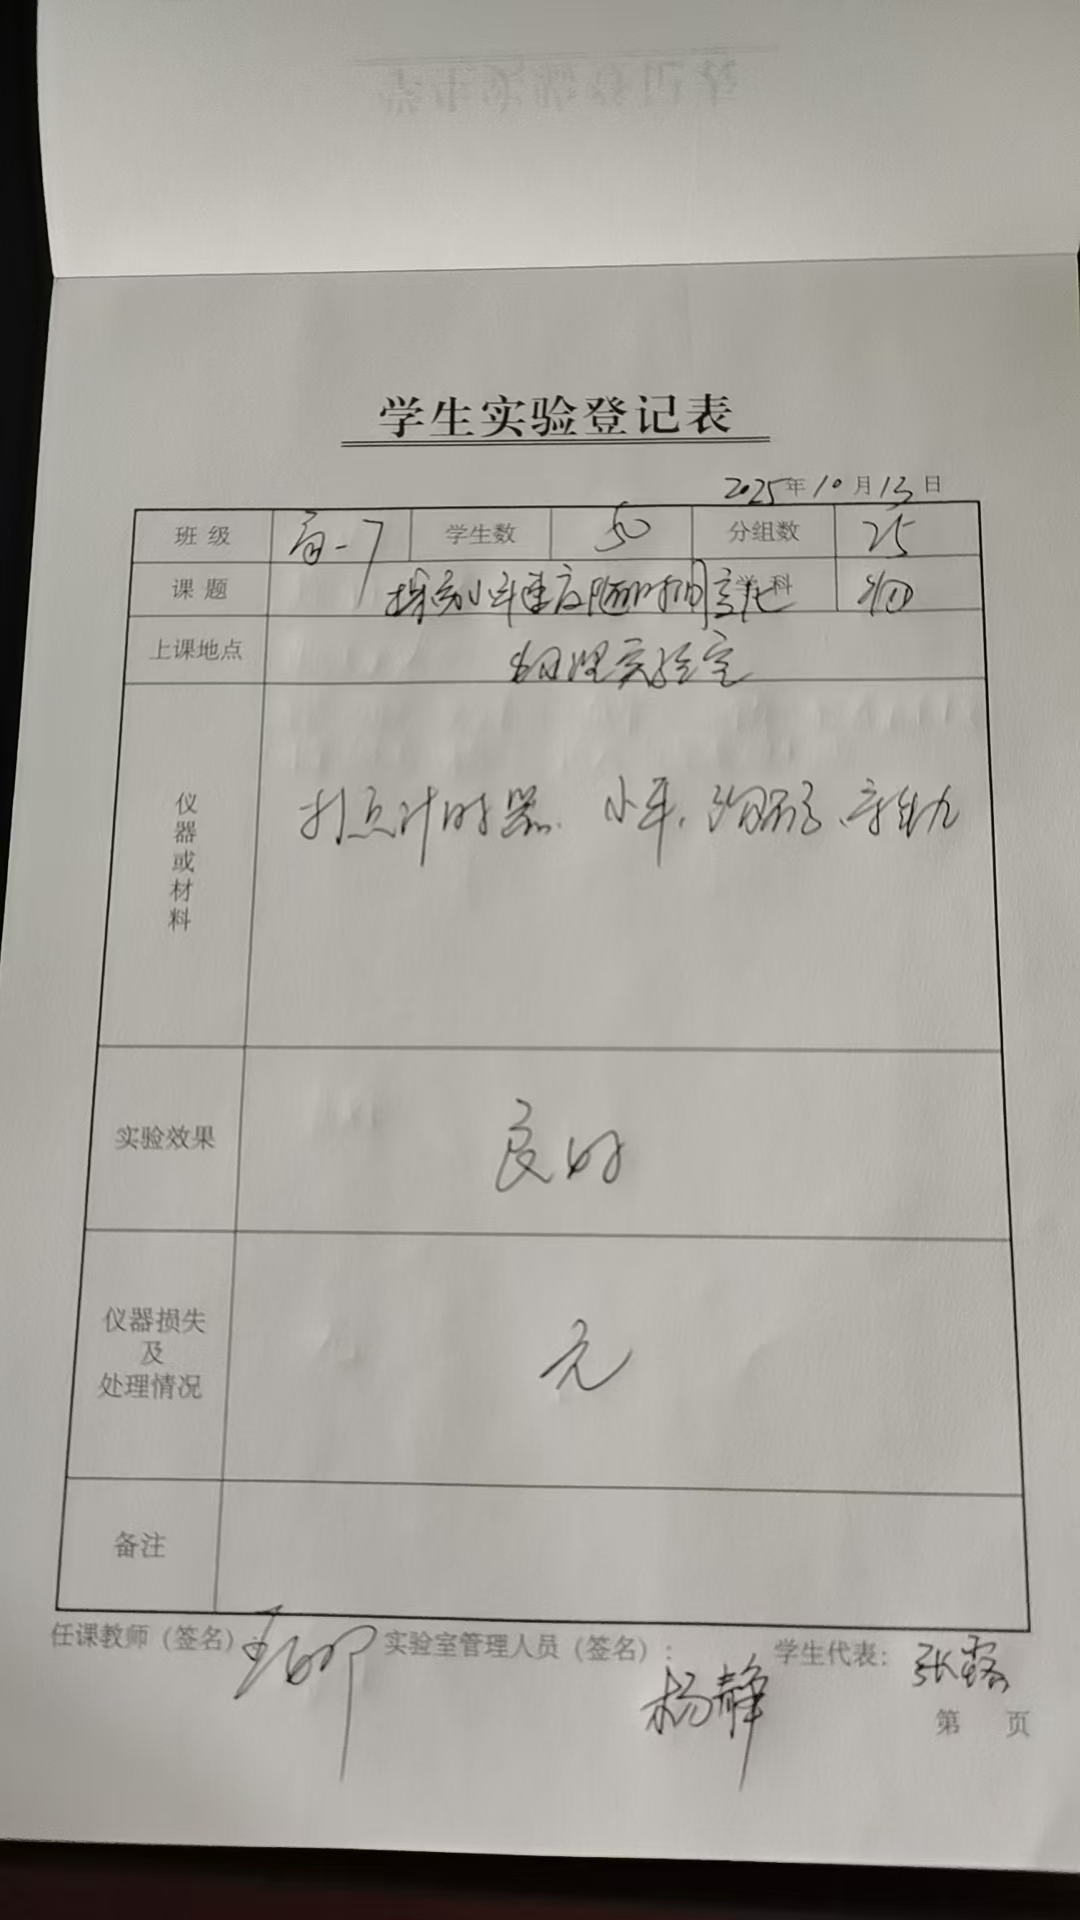 学生实验登记表
2025年10月13日
班级 高一7 学生数 50 分组数 25
课题 探究小车速度随时间变化 学科 物理
上课地点 物理实验室
仪器或材料 打点计时器、小车、钩码、导轨
实验效果 良好
仪器损失及处理情况 无
备注
任课教师（签名）： 实验室管理人员（签名）：杨静 学生代表：张露
第 页